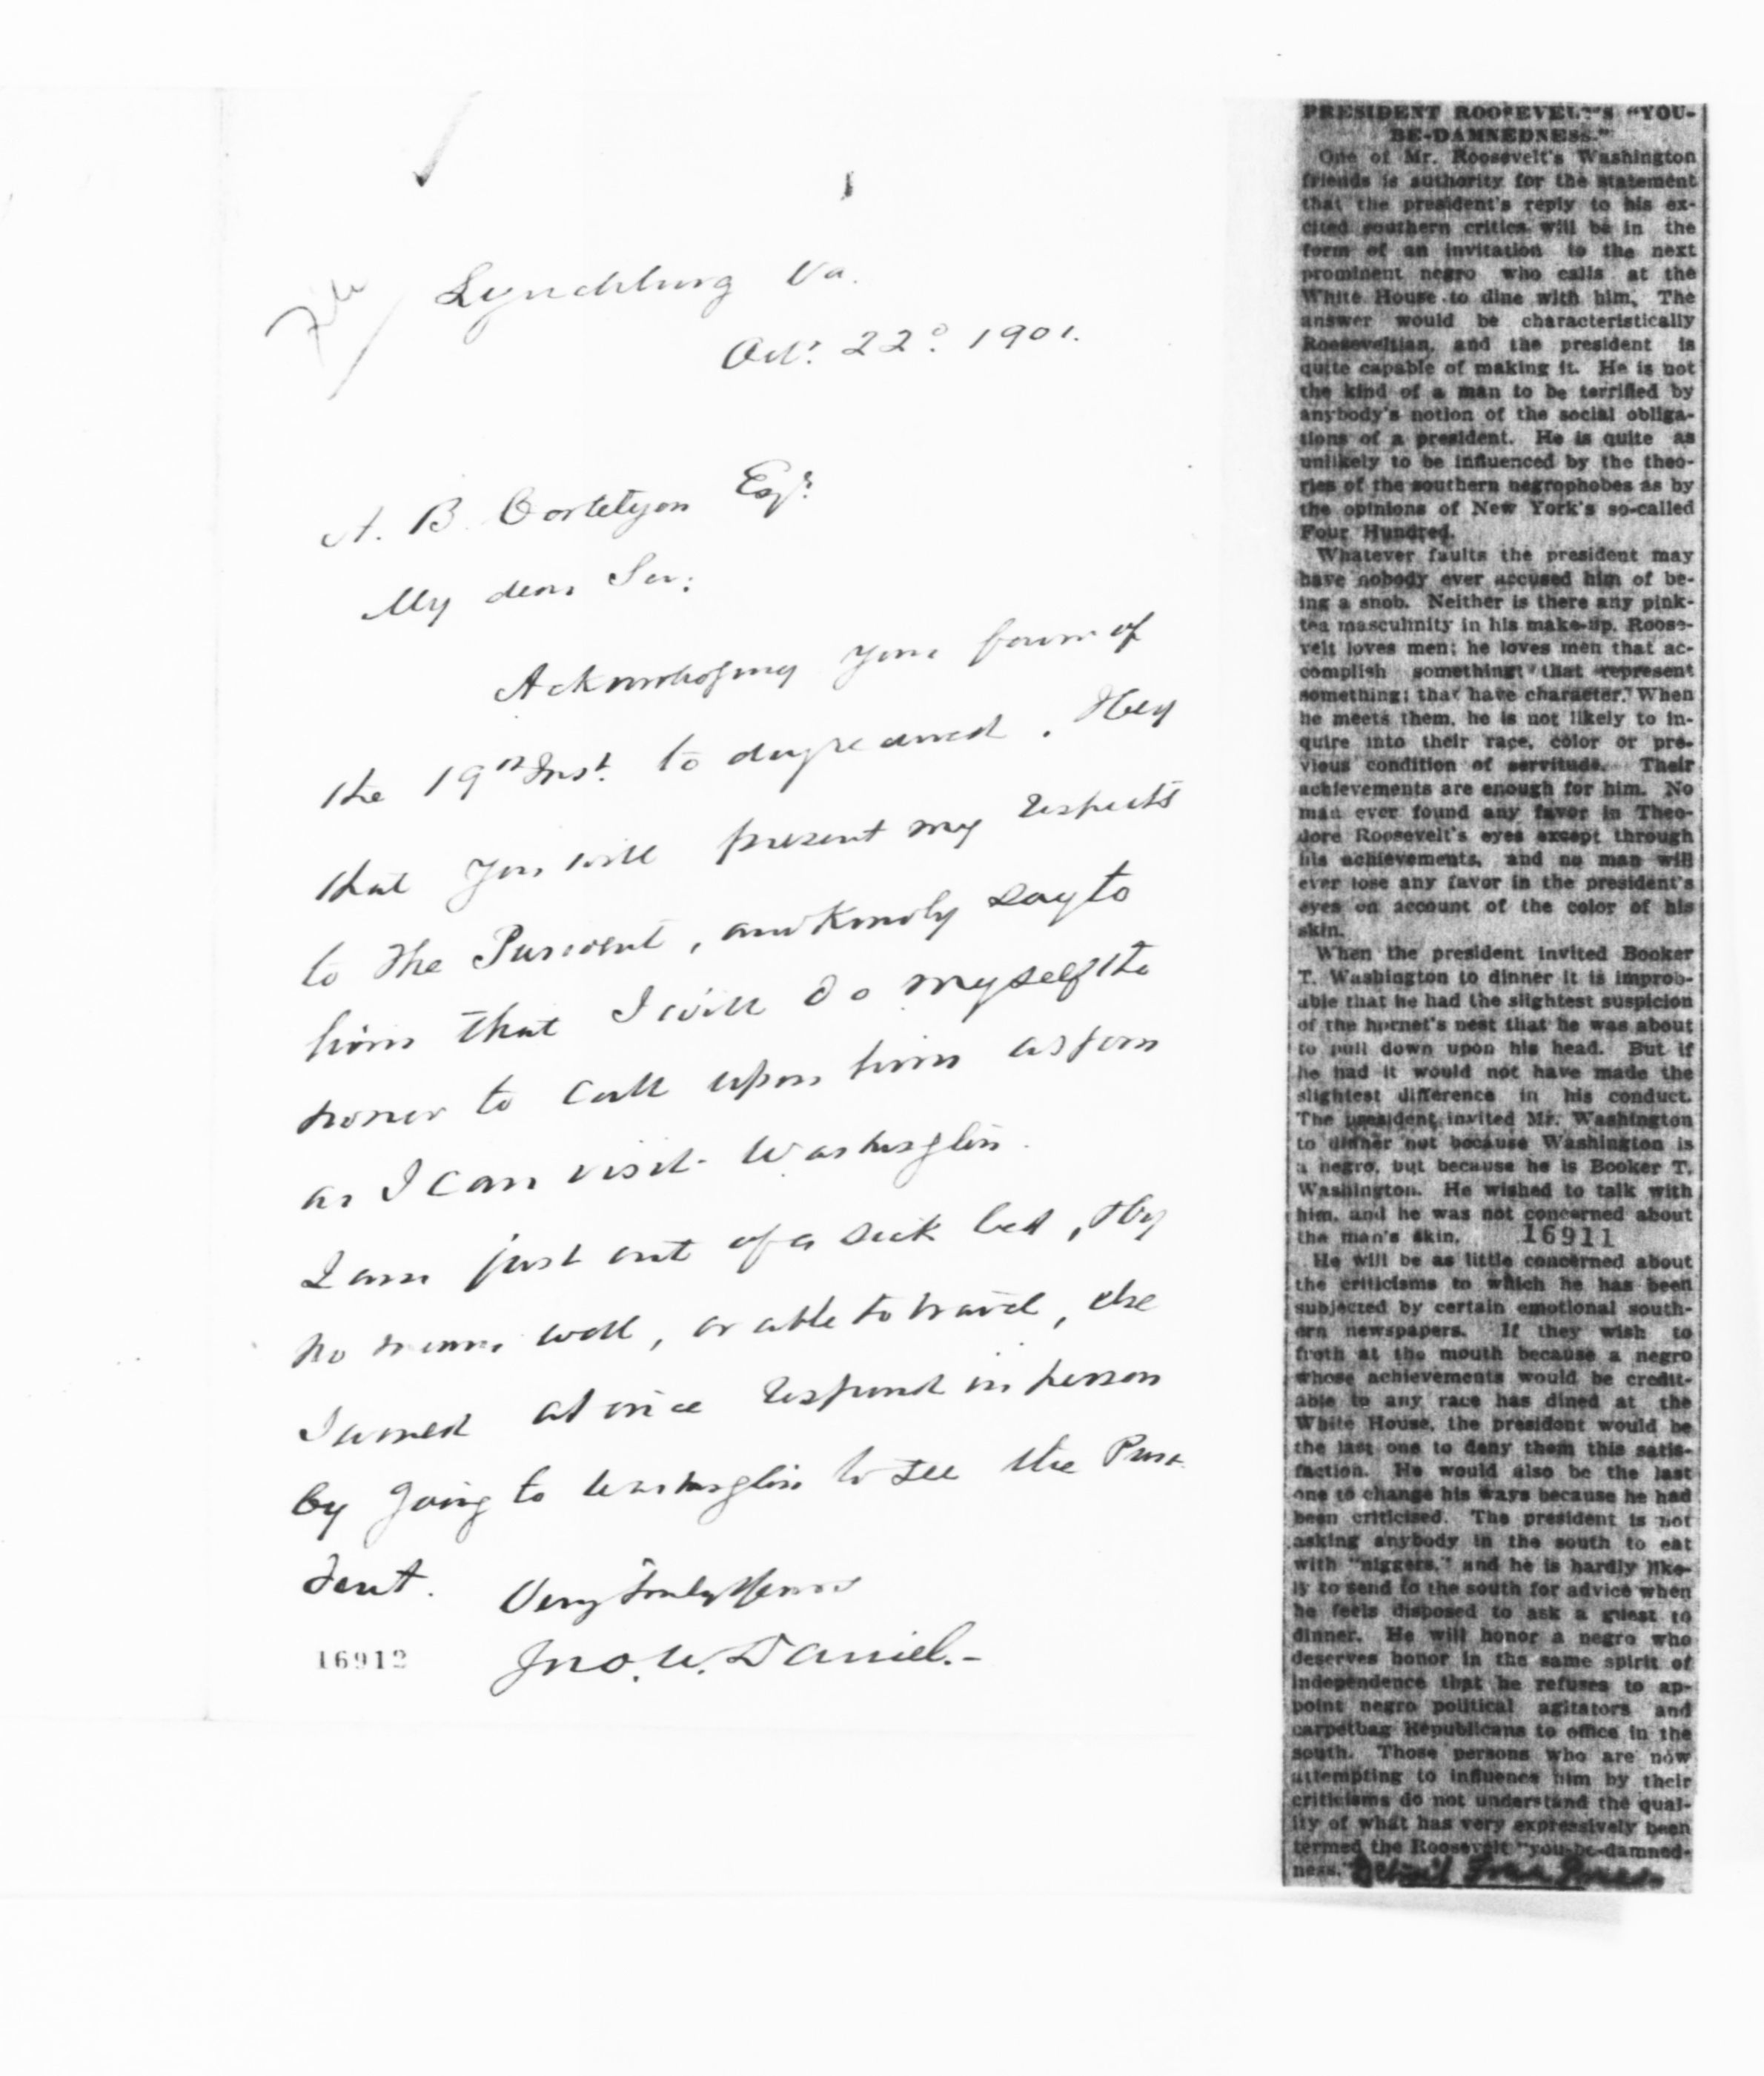 File
Lynchburg Va.
Oct. 22d. 1901.
A. B. Cortelyou Esqr.
My dear Sir:
Acknowledging your favor of
the 19th Inst. to day received. I beg
that you will present my respects
to the President, and kindly say to
him that I will do myself the
honor to call upon him as soon
as I can visit Washington.
I am just out of a sick bed, & by
no means well, or able to travel, else
I would at once respond in person
by going to Washington to see the Presi-
dent.
Very truly yours
Jno. W. Daniel.-
16912
PRESIDENT ROOSEVELT'S "YOU-
BE-DAMNEDNESS."
One of Mr. Roosevelt's Washington
friends is authority for the statement
that the president's reply to his ex-
cited southern critics will be in the
form of an invitation to the next
prominent negro who calls at the
White House to dine with him. The
answer would be characteristically
Rooseveltian, and the president is
quite capable of making it. He is not
the kind of a man to be terrified by
anybody's notion of the social obliga-
tions of a president. He is quite as
unlikely to be influenced by the theo-
ries of the southern negrophobes as by
the opinions of New York's so-called
Four Hundred.
Whatever faults the president may
have nobody ever accused him of be-
ing a snob. Neither is there any pink-
tea masculinity in his make-up. Roose-
velt loves men; he loves men that ac-
complish something; that represent
something; that have character. When
he meets them, he is not likely to in-
quire into their race, color or pre-
vious condition of servitude. Their
achievements are enough for him. No
man ever found any favor in Theo-
dore Roosevelt's eyes except through
his achievements, and no man will
ever lose any favor in the president's
eyes on account of the color of his
skin.
When the president invited Booker
T. Washington to dinner it is improb-
able that he had the slightest suspicion
of the hornet's nest that he was about
to pull down upon his head. But if
he had it would not have made the
slightest difference in his conduct.
The president invited Mr. Washington
to dinner not because Washington is
a negro, but because he is Booker T.
Washington. He wished to talk with
him, and he was not concerned about
the man's skin. 16911
He will be as little concerned about
the criticisms to which he has been
subjected by certain emotional south-
ern newspapers. If they wish to
froth at the mouth because a negro
whose achievements would be credit-
able to any race has dined at the
White House, the president would be
the last one to deny them this satis-
faction. He would also be the last
one to change his ways because he had
been criticised. The president is not
asking anybody in the south to eat
with "niggers," and he is hardly like-
ly to send to the south for advice when
he feels disposed to ask a guest to
dinner. He will honor a negro who
deserves honor in the same spirit of
independence that he refuses to ap-
point negro political agitators and
carpetbag Republicans to office in the
south. Those persons who are now
attempting to influence him by their
criticisms do not understand the qual-
ity of what has very expressively been
termed the Roosevelt "you-be-damned-
ness." Detroit Free Press.